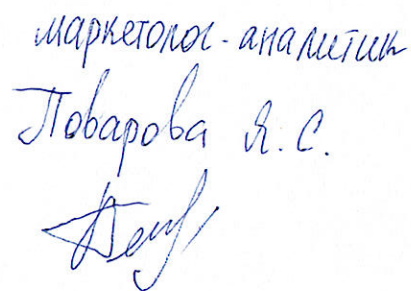 маркетолог-аналитик
Поварова Я. С.